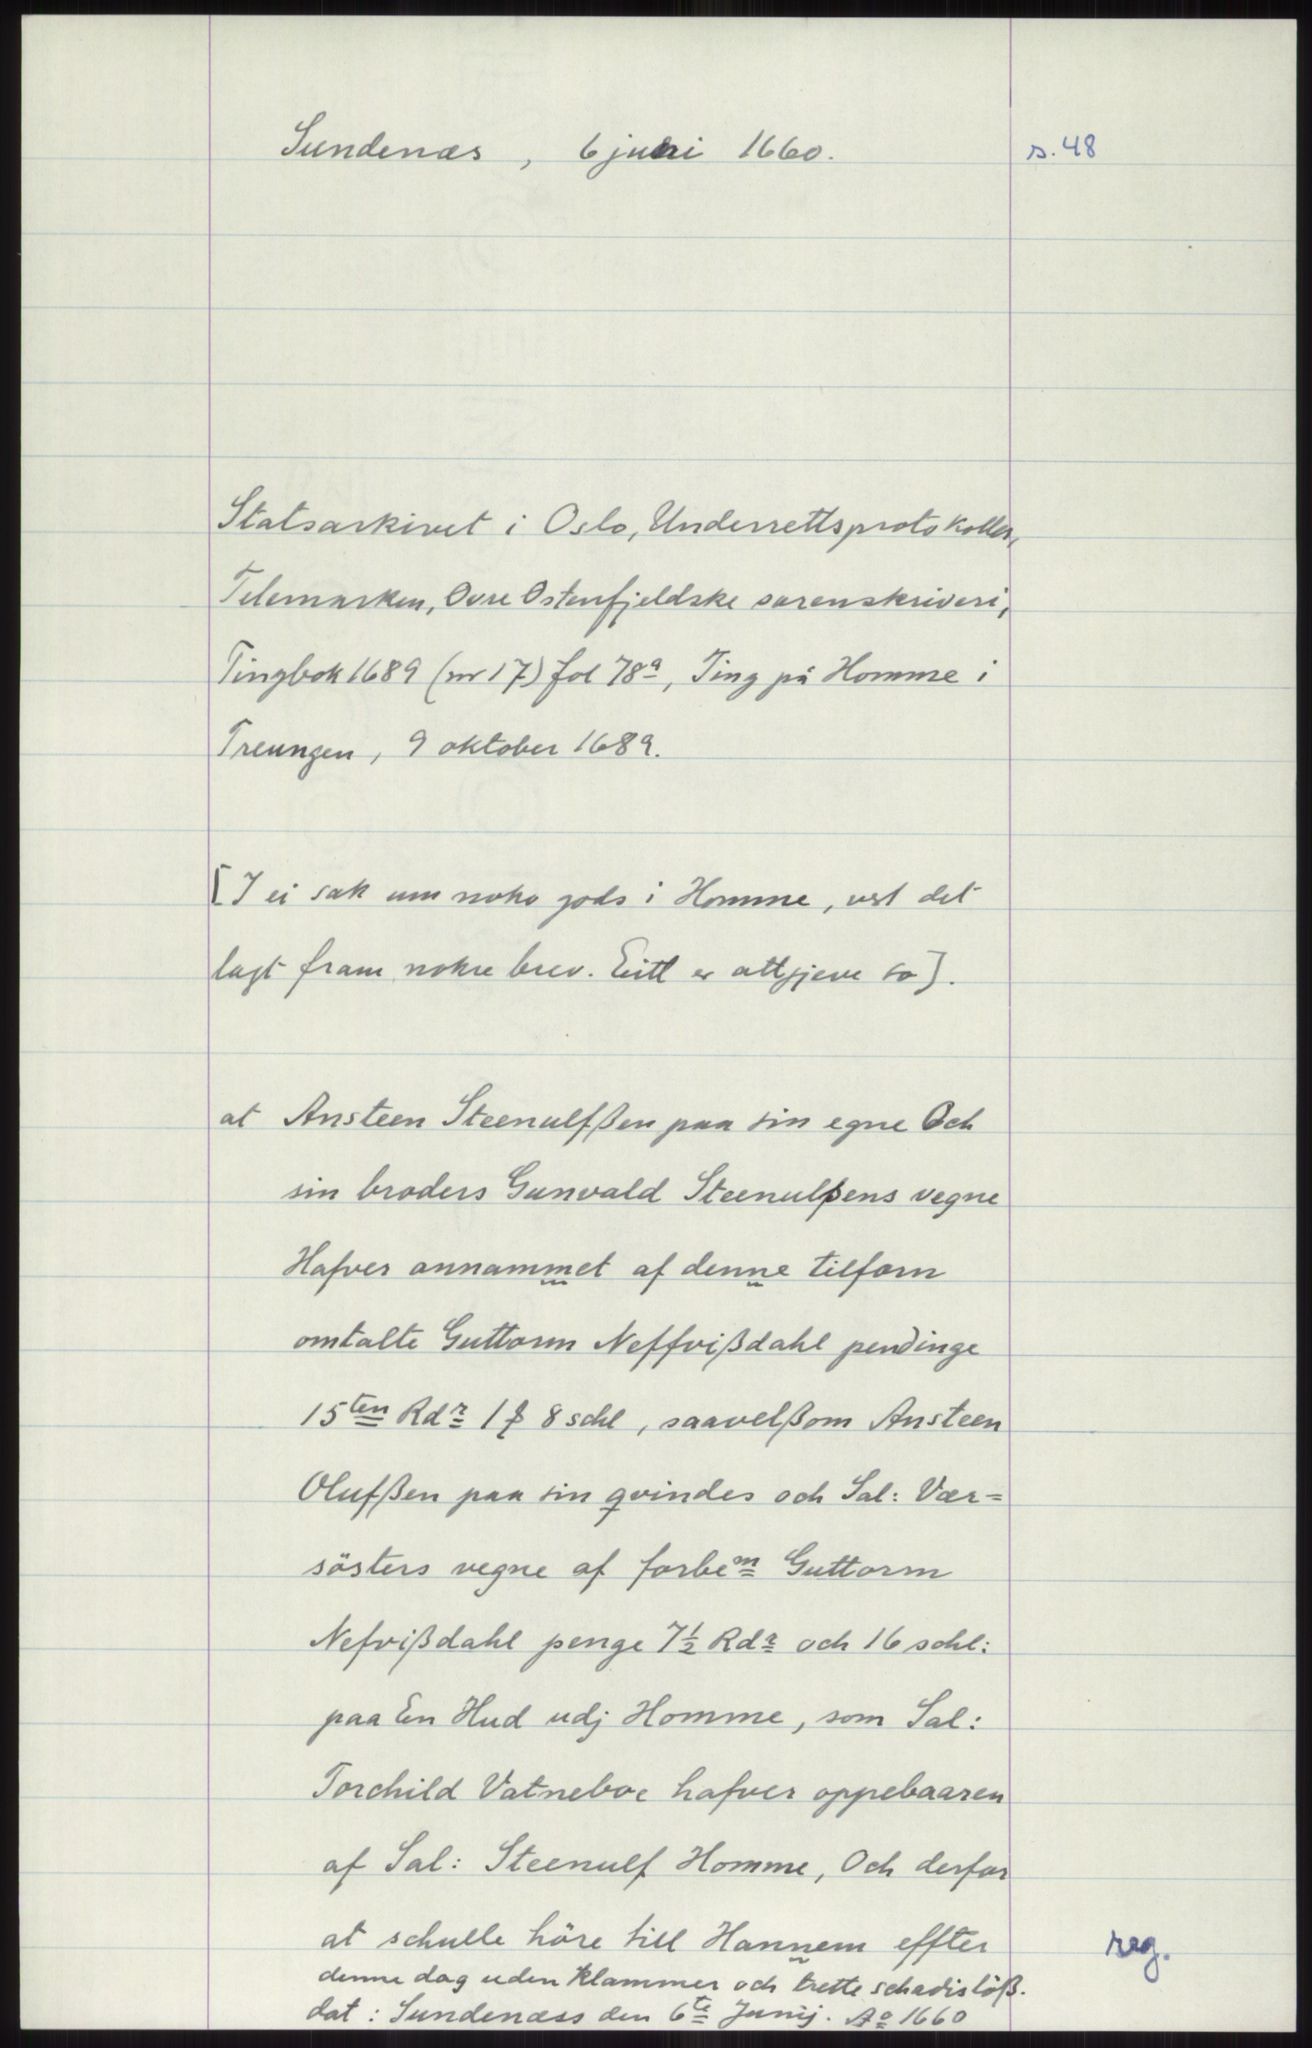 Sundenæs, 6 juni 1660. s. 48
Statsarkivet i Oslo, Underrettsprotokoller,
Telemarken, Øvre Østenfjeldske sorenskriveri,
Tingbok 1689 (nr 17) fol 78ª, Ting på Homme i
Treungen, 9 oktober 1689.
[I ei sak um noko gods i Homme, vert det
lagt fram nokre brev. Eitt er attgjeve so].
at Ansteen Steenulfßen paa sin egne Och
sin broders Gunvald Steenulßens vegne
Hafver annammet af denne tilforn
omtalte Guttorm Neffvißdahl pendinge
15ten Rdr 1 ƶ 8 schl, saavelßom Ansteen
Olufßen paa sin qvindes och Sal: Vær=
sösters vegne af forbem Guttorm
Nefvißdahl penge 7½ Rdr och 16 schl:
paa En Hud udj Homme, som Sal:
Torchild Vatneboe hafver oppebaaren
af Sal: Steenulf Homme, Och derfor
at schulle höre till Hannem effter reg.
denne dag uden Klammer och trette schadislöß.
dat: Sundenæss den 6te Junij. Aº 1660